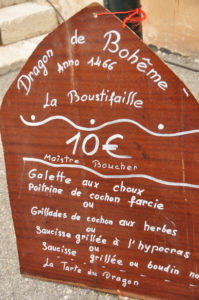 Dragon de Bohême
Anno 1466
La Boustifaille
10€
Maistre Boucher
Galette aux choux
Poitrine de cochon farcie
ou
Grillades de cochon aux herbes
ou
Saucisse grillée à l'hypocras
ou
Saucisse grillée ou boudin no
La Tarte du Dragon